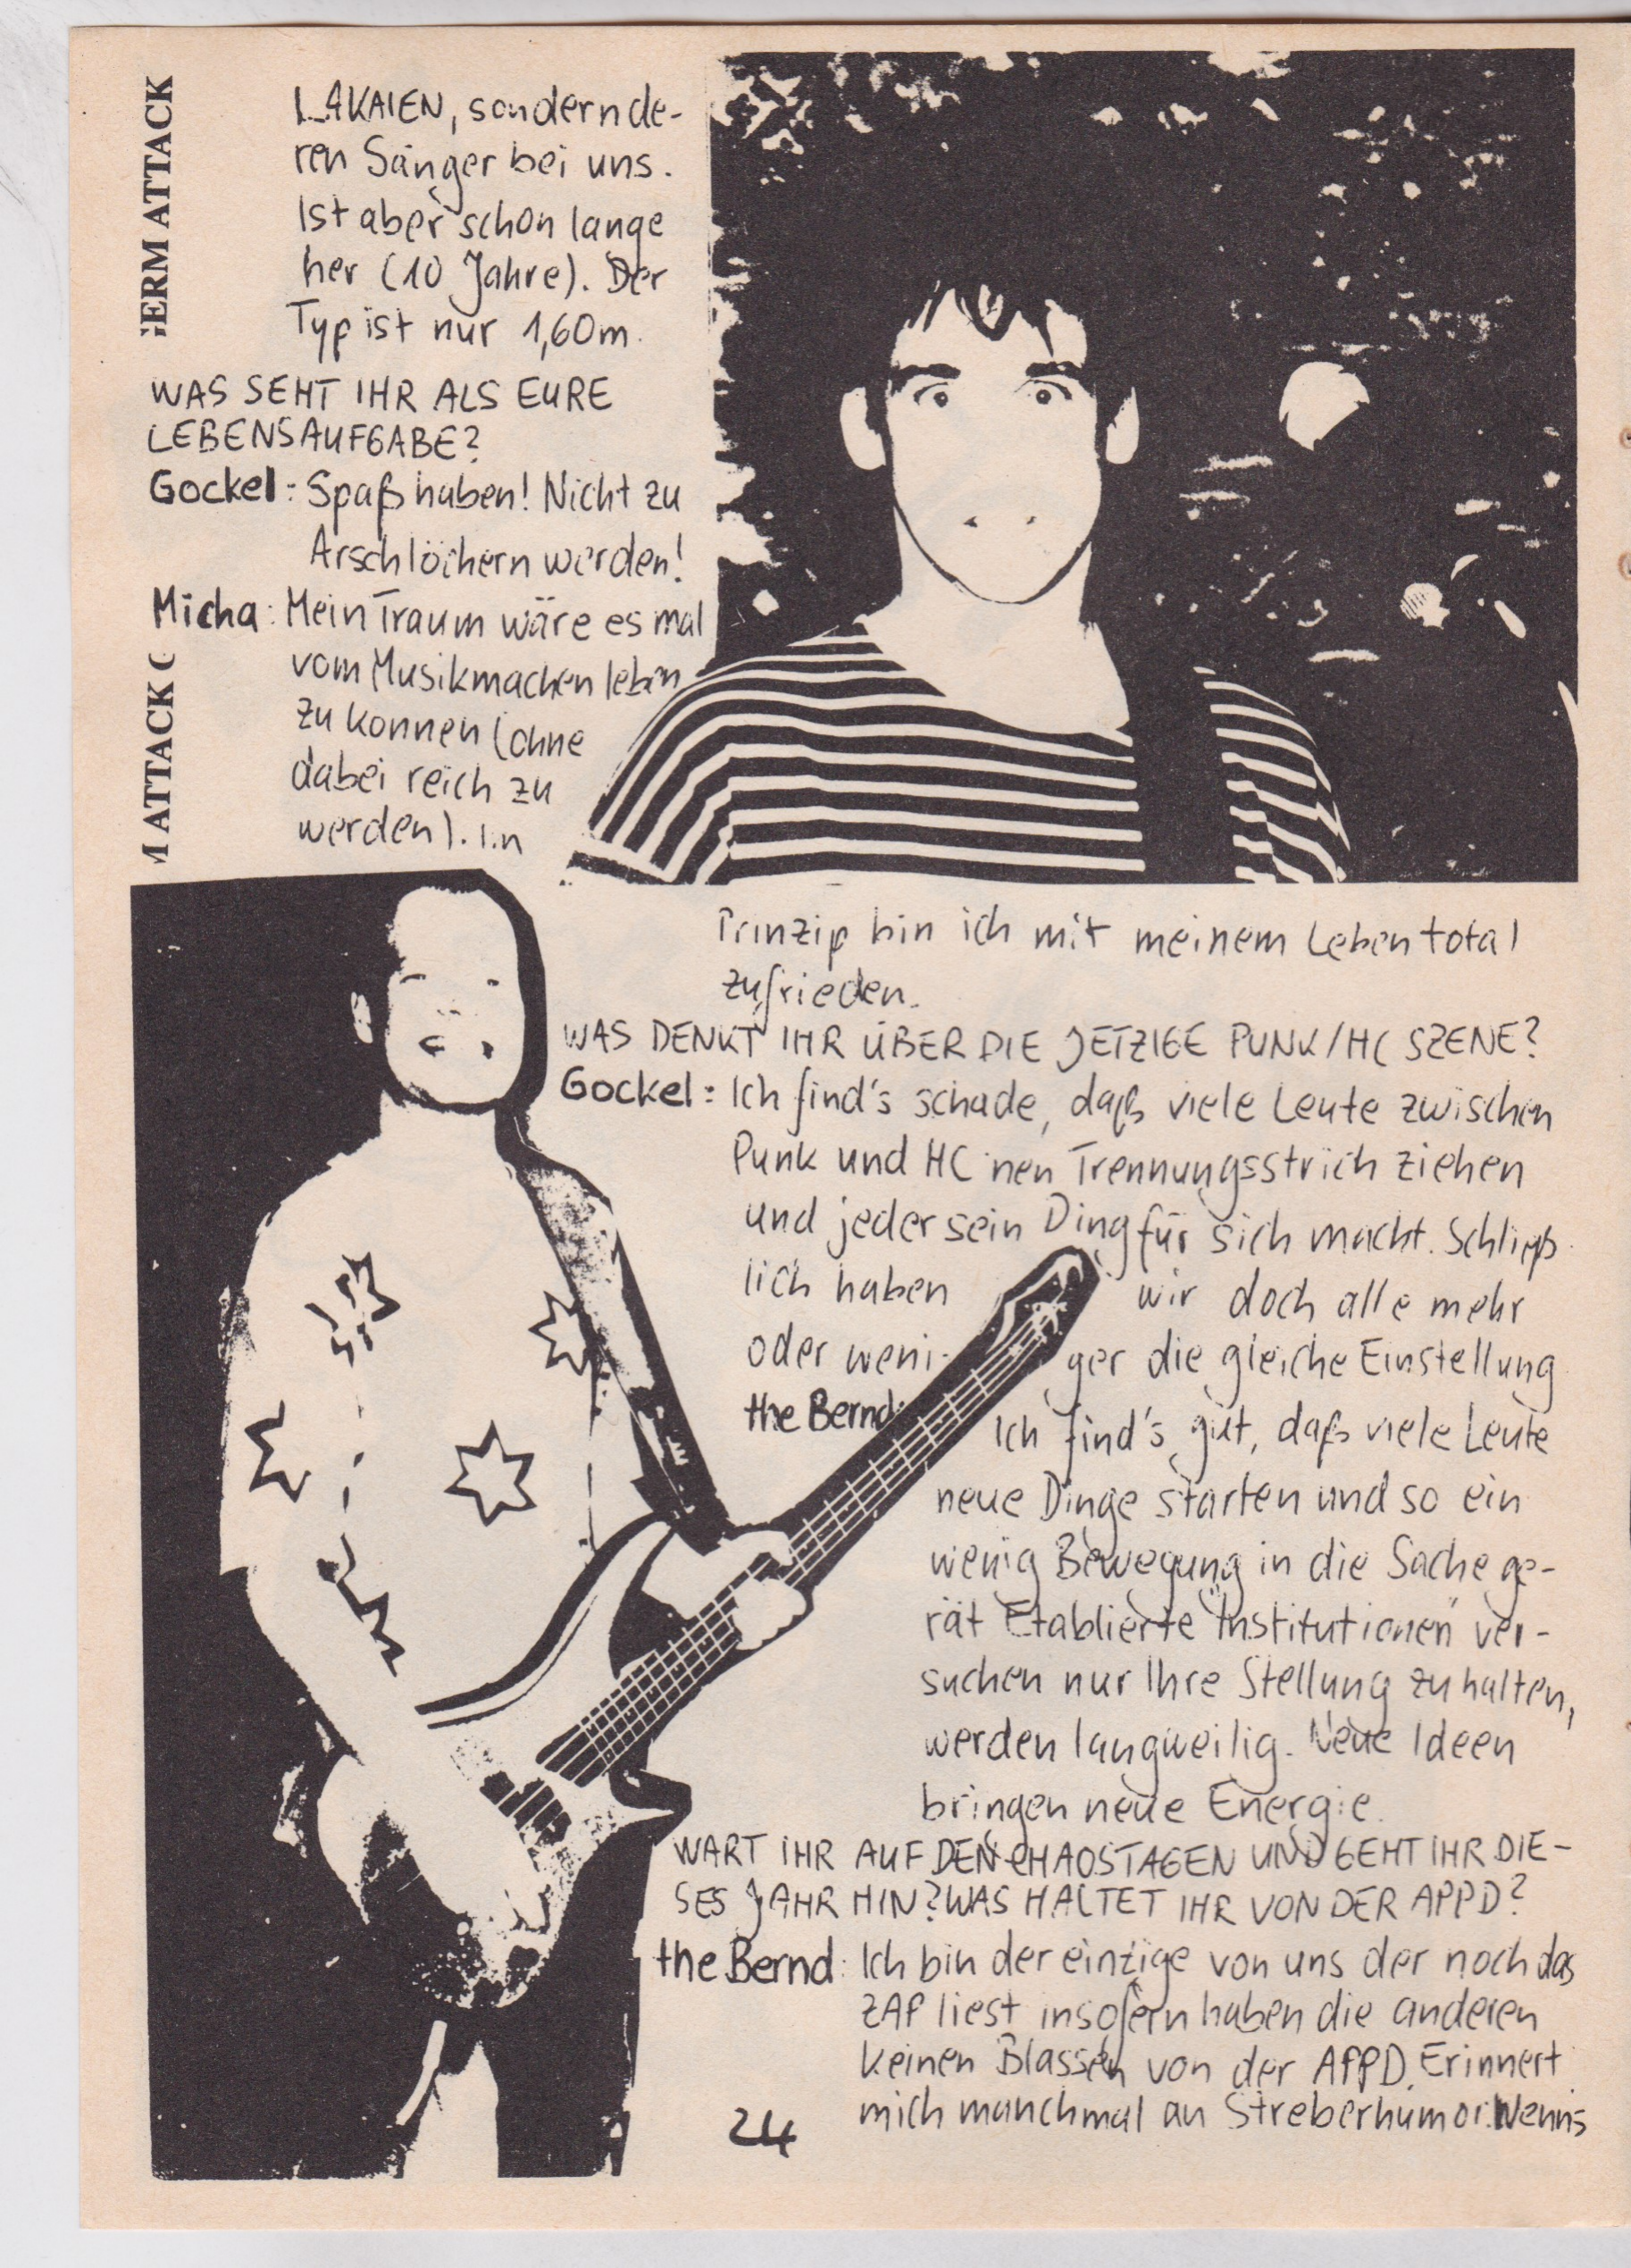 GERM ATTACK
M ATTACK
LAKAIEN, sondern de-
ren Sänger bei uns.
Ist aber schon lange
her (10 Jahre). Der
Typ ist nur 1,60m.
WAS SEHT IHR ALS EURE
LEBENSAUFGABE?
Gockel: Spaß haben! Nicht zu
Arschlöchern werden!
Micha: Mein Traum wäre es mal
vom Musikmachen leben
zu können (ohne
dabei reich zu
werden). Im
Prinzip bin ich mit meinem Leben total
zufrieden.
WAS DENKT IHR ÜBER DIE JETZIGE PUNK/HC SZENE?
Gockel: Ich find's schade, daß viele Leute zwischen
Punk und HC 'nen Trennungsstrich ziehen
und jeder sein Ding für sich macht. Schließ
lich haben wir doch alle mehr
oder weni- ger die gleiche Einstellung
the Bernd: Ich find's gut, daß viele Leute
neue Dinge starten und so ein
wenig Bewegung in die Sache ge-
rät Etablierte "Institutionen" ver-
suchen nur Ihre Stellung zu halten,
werden langweilig. Neue Ideen
bringen neue Energie.
WART IHR AUF DEN CHAOSTAGEN UND GEHT IHR DIE-
SES JAHR HIN? WAS HALTET IHR VON DER APPD?
the Bernd: Ich bin der einzige von uns der noch das
ZAP liest insofern haben die anderen
keinen Blassen von der APPD. Erinnert
mich manchmal an Streberhumor. Wenns
24